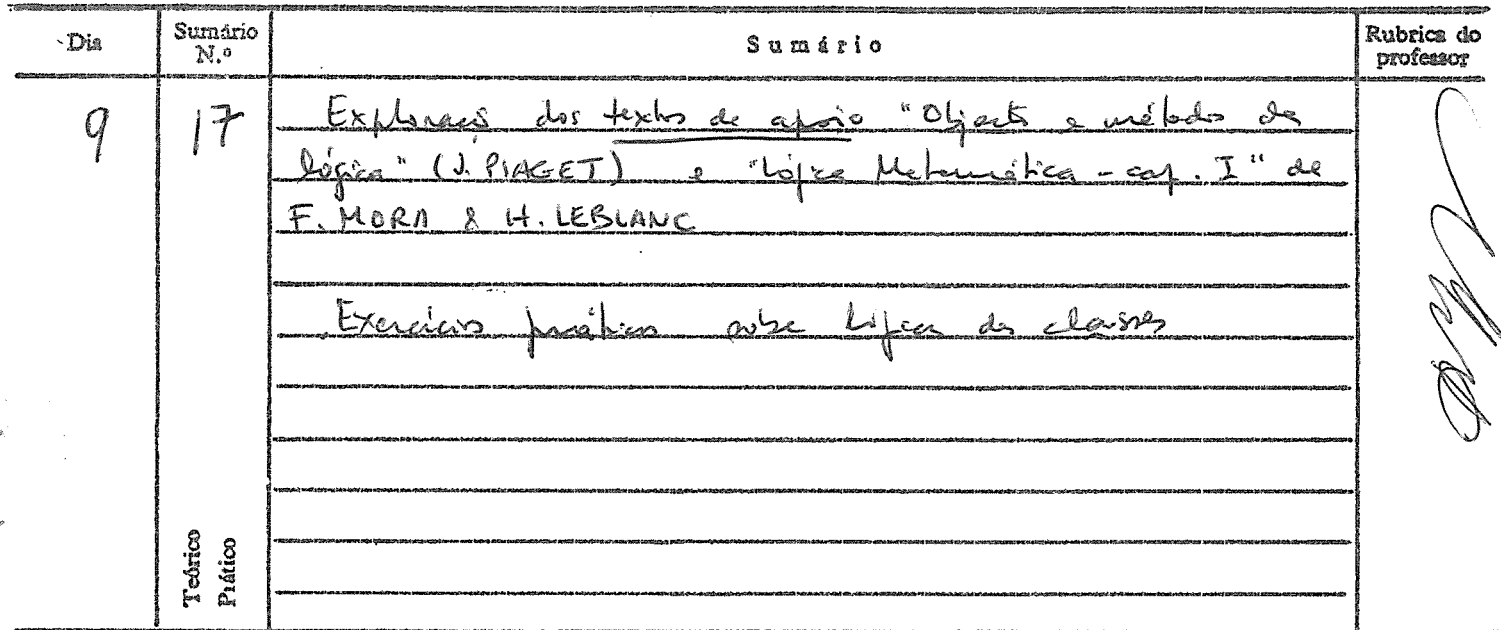 Dia Sumário N.º Sumário Rubrica do professor
9 17 Exploração dos textos de apoio "Objecto e método da
lógica" (J. PIAGET) e "Lógica Matemática - cap. I" de
F. MORA & H. LEBLANC
Exercícios práticos sobre Lógica das classes
Teórico
Prático